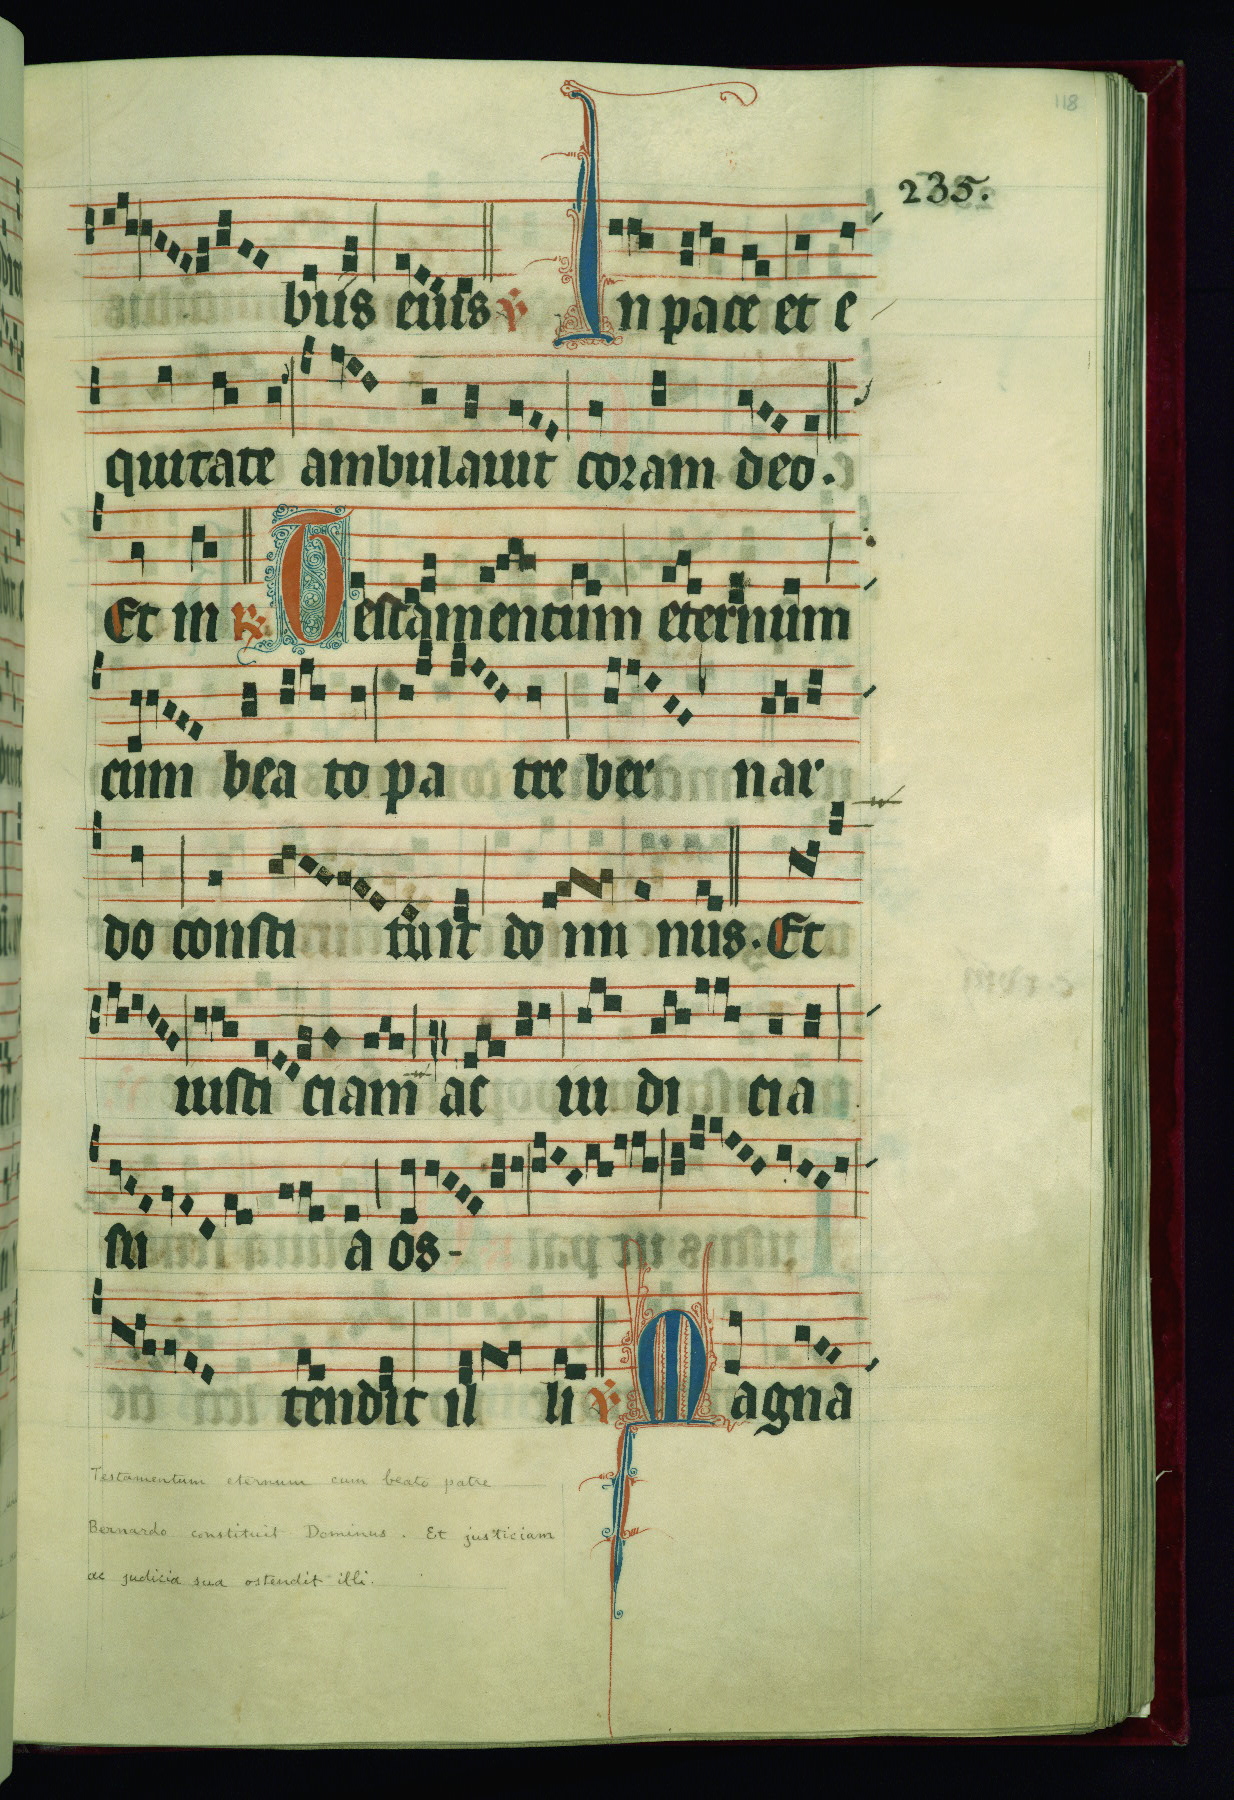 118
235.
bus eius ℣ In pace et e
quitate ambulauit coram deo.
Et in ℟ Testamentum eternum
cum bea to pa tre ber nar
do consti tuit do mi nus. Et
iusti ciam ac iu di cia
su a os-
tendit il li ℣ Magna
Testamentum eternum cum beato patre
Bernardo constituit Dominus. Et justiciam
ac judicia sua ostendit illi.